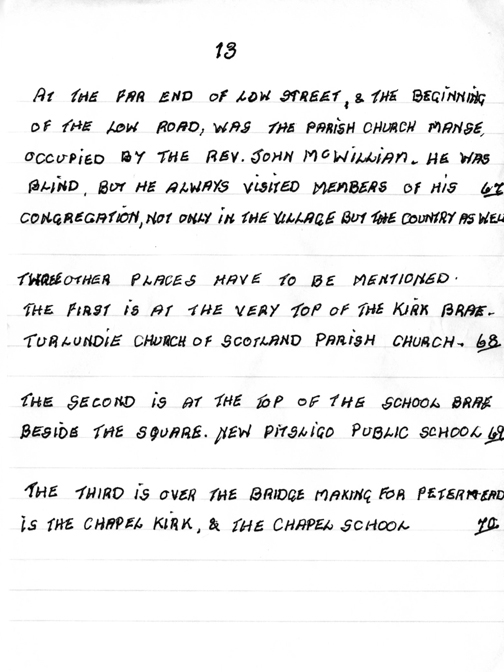 13
AT THE FAR END OF LOW STREET, & THE BEGINNING
OF THE LOW ROAD, WAS THE PARISH CHURCH MANSE,
OCCUPIED BY THE REV. JOHN MCWILLIAM. HE WAS
BLIND, BUT HE ALWAYS VISITED MEMBERS OF HIS 67
CONGREGATION, NOT ONLY IN THE VILLAGE BUT THE COUNTRY AS WEL
THREE OTHER PLACES HAVE TO BE MENTIONED.
THE FIRST IS AT THE VERY TOP OF THE KIRK BRAE-
TURLUNDIE CHURCH OF SCOTLAND PARISH CHURCH- 68
THE SECOND IS AT THE TOP OF THE SCHOOL BRAE
BESIDE THE SQUARE. NEW PITSLIGO PUBLIC SCHOOL 69
THE THIRD IS OVER THE BRIDGE MAKING FOR PETERHEAD
IS THE CHAPEL KIRK, & THE CHAPEL SCHOOL 70